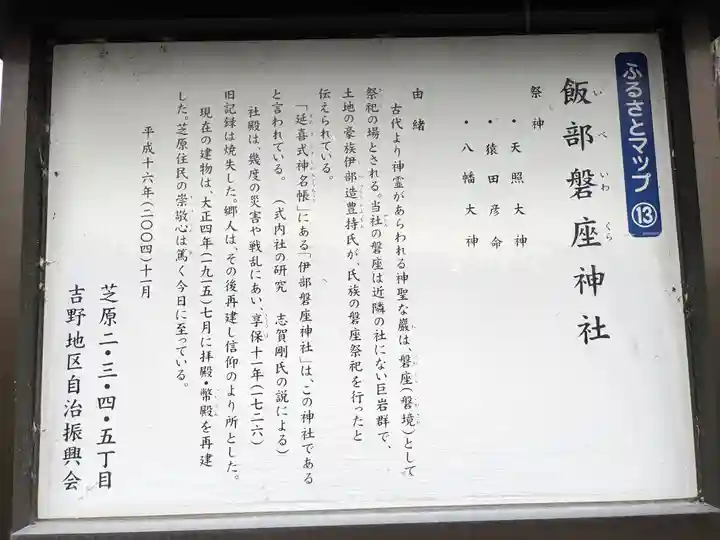 ふるさとマップ ⑬
飯部磐座神社
いべいわくら
祭神
・天照大神
・猿田彦命
・八幡大神
由緒
古代より神霊があらわれる神聖な巌は、磐座(磐境)として
祭祀の場とされる。当社の磐座は近隣の社にない巨岩群で、
土地の豪族伊部造豊持氏が、氏族の磐座祭祀を行ったと
伝えられている。
「延喜式神名帳」にある「伊部磐座神社」は、この神社である
と言われている。(式内社の研究 志賀剛氏の説による)
社殿は、幾度の災害や戦乱にあい、享保十一年(一七二六)
旧記録は焼失した。郷人は、その後再建し信仰のより所とした。
現在の建物は、大正四年(一九一五)七月に拝殿・幣殿を再建
した。芝原住民の崇敬心は篤く今日に至っている。
平成十六年(二〇〇四)十一月
芝原二・三・四・五丁目
吉野地区自治振興会